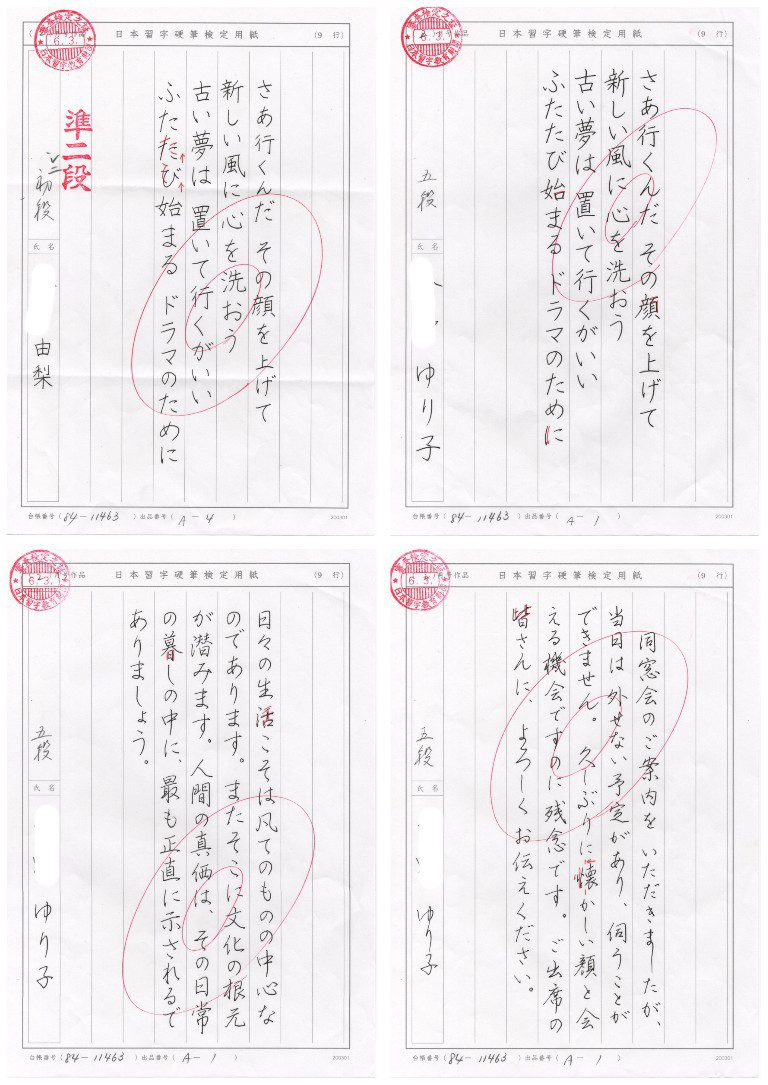 日本習字硬筆検定用紙
(9 行)
6.3.
日本習字教育財団
さあ行くんだ その顔を上げて
新しい風に心を洗おう
古い夢は 置いて行くがいい
ふたたび始まる ドラマのために
準二段
初段
氏名
由梨
台帳番号(84-11463 )出品番号( A-4 )
200301
日本習字硬筆検定用紙
(9 行)
6.3.
日本習字教育財団
さあ行くんだ その顔を上げて
新しい風に心を洗おう
古い夢は 置いて行くがいい
ふたたび始まる ドラマのために
五段
氏名
ゆり子
台帳番号(84-11463 )出品番号( A-1 )
200301
作品
日本習字硬筆検定用紙
(9 行)
6.3.
日本習字教育財団
日々の生活こそは凡てのものの中心な
のであります。またそこに文化の根元
が潜みます。人間の真価は、その日常
の暮しの中に、最も正直に示されるで
ありましょう。
五段
氏名
ゆり子
台帳番号(84-11463 )出品番号( A-1 )
200301
作品
日本習字硬筆検定用紙
(9 行)
6.3.
日本習字教育財団
同窓会のご案内を いただきましたが、
当日は外せない予定があり、伺うことが
できません。久しぶりに懐かしい顔と会
える機会ですのに残念です。ご出席の
皆さんに、よろしくお伝えください。
五段
氏名
ゆり子
台帳番号(84-11463 )出品番号( A-1 )
200301